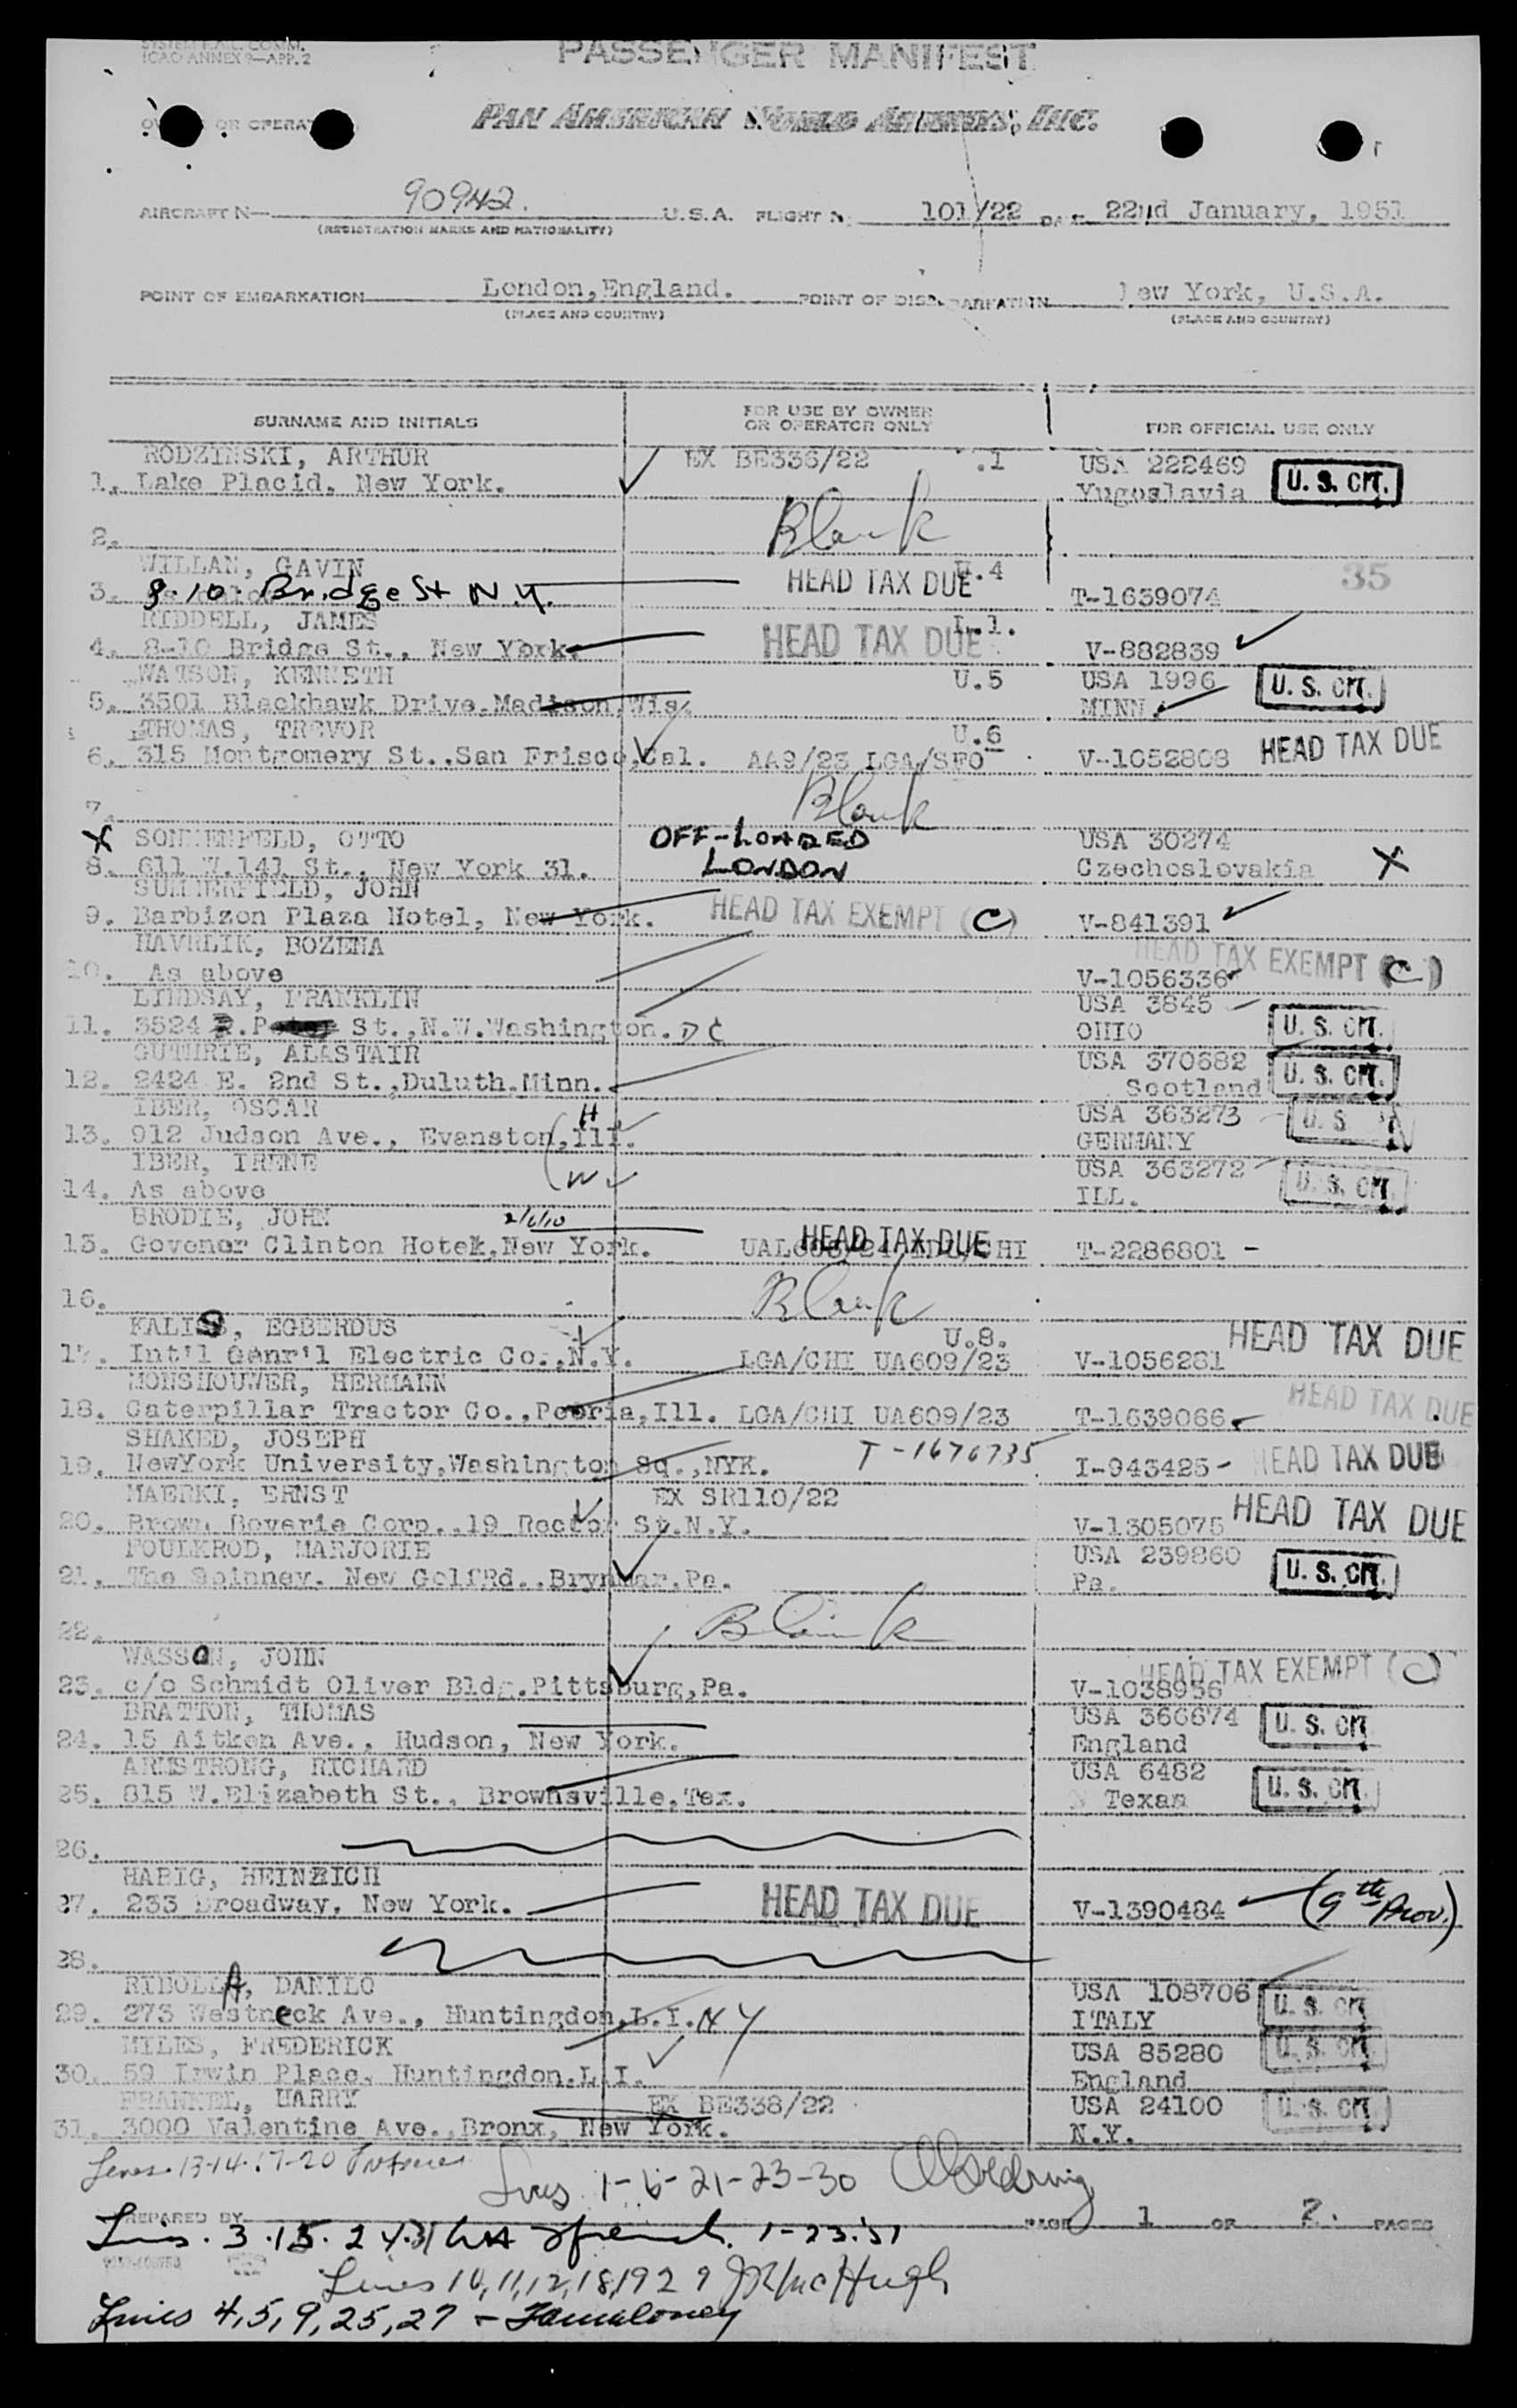 ICAO ANNEX 9—APP. 2
PASSENGER MANIFEST
OR OPERAT
PAN AMERICAN WORLD AIRWAYS, INC.
AIRCRAFT N— 90942. U.S.A. FLIGHT N 101/22 22nd January, 1951
(REGISTRATION MARKS AND NATIONALITY)
POINT OF EMBARKATION London, England. POINT OF DISEMBARKATION New York, U.S.A.
(PLACE AND COUNTRY) (PLACE AND COUNTRY)
SURNAME AND INITIALS FOR USE BY OWNER OR OPERATOR ONLY FOR OFFICIAL USE ONLY
RODZINSKI, ARTHUR EX BE336/22 .1 USA 222469
1. Lake Placid, New York. Yugoslavia U. S. CIT.
2. Blank
WILLAN, GAVIN U.4 35
3. 8-10 Bridge St N.Y. HEAD TAX DUE T-1639074
RIDDELL, JAMES .1.
4. 8-10 Bridge St., New York. HEAD TAX DUE V-882839
WATSON, KENNETH U.5 USA 1996 U. S. CIT.
5. 3501 Blackhawk Drive, Madison, Wis. MINN.
THOMAS, TREVOR U.6
6. 315 Montgomery St., San Frisco, Cal. AA9/23 LGA/SFO V-1052808 HEAD TAX DUE
7. Blank
X SONNENFELD, OTTO OFF-LOADED USA 30274
8. 611 W.141 St., New York 31. LONDON Czechoslovakia X
SUMMERFIELD, JOHN
9. Barbizon Plaza Hotel, New York. HEAD TAX EXEMPT (C) V-841391
HAVRLIK, BOZENA
10. As above V-1056336 HEAD TAX EXEMPT (C)
LINDSAY, FRANKLIN USA 3845
11. 3524 St., N.W. Washington. DC OHIO U. S. CIT.
GUTHRIE, ALASTAIR USA 370682
12. 2424 E. 2nd St., Duluth, Minn. Scotland U. S. CIT.
IBER, OSCAR H USA 363273
13. 912 Judson Ave., Evanston, Ill. GERMANY U. S.
IBER, IRENE W USA 363272
14. As above ILL. U. S. CIT.
BRODIE, JOHN
15. Govenor Clinton Hotel, New York. HEAD TAX DUE T-2286801 -
16. Blank
KALIS, EGBERDUS U.8.
17. Int'l Genr'l Electric Co., N.Y. LGA/CHI UA609/23 V-1056281 HEAD TAX DUE
MONSHOUWER, HERMANN
18. Caterpillar Tractor Co., Peoria, Ill. LGA/CHI UA609/23 T-1639066 HEAD TAX DUE
SHAKED, JOSEPH T-1676735
19. NewYork University, Washington Sq., NYK. I-943425 HEAD TAX DUE
MAERKI, ERNST EX SR110/22
20. Brown Boverie Corp., 19 Rector St. N.Y. V-1305075 HEAD TAX DUE
FOULKROD, MARJORIE USA 239860
21. The Spinney. New GolfRd., Brynmar, Pa. Pa. U. S. CIT.
22. Blank
WASSON, JOHN
23. c/o Schmidt Oliver Bldg. Pittsburg, Pa. V-1038956 HEAD TAX EXEMPT (C)
BRATTON, THOMAS USA 366674
24. 15 Aitken Ave., Hudson, New York. England U. S. CIT.
ARMSTRONG, RICHARD USA 6482
25. 815 W. Elizabeth St., Brownsville, Tex. Texas U. S. CIT.
26.
HABIG, HEINRICH
27. 233 Broadway, New York. HEAD TAX DUE V-1390484 (9th Prov.)
28.
RIBOLLA, DANILO USA 108706
29. 273 Westneck Ave., Huntingdon, L.I. NY ITALY U. S. CIT.
MILES, FREDERICK USA 85280
30. 59 Irwin Place, Huntingdon, L.I. England U. S. CIT.
FRANKEL, HARRY EX BE338/22 USA 24100
31. 3000 Valentine Ave., Bronx, New York. N.Y. U. S. CIT.
Lines 13-14-17-20
Lines 1-6-21-23-30
PREPARED BY PAGE 1 OF 2. PAGES
Lines 3.15.24.31 1-23-51
Lines 10, 11, 12, 18, 19 29 JR McHugh
Lines 4, 5, 9, 25, 27 -